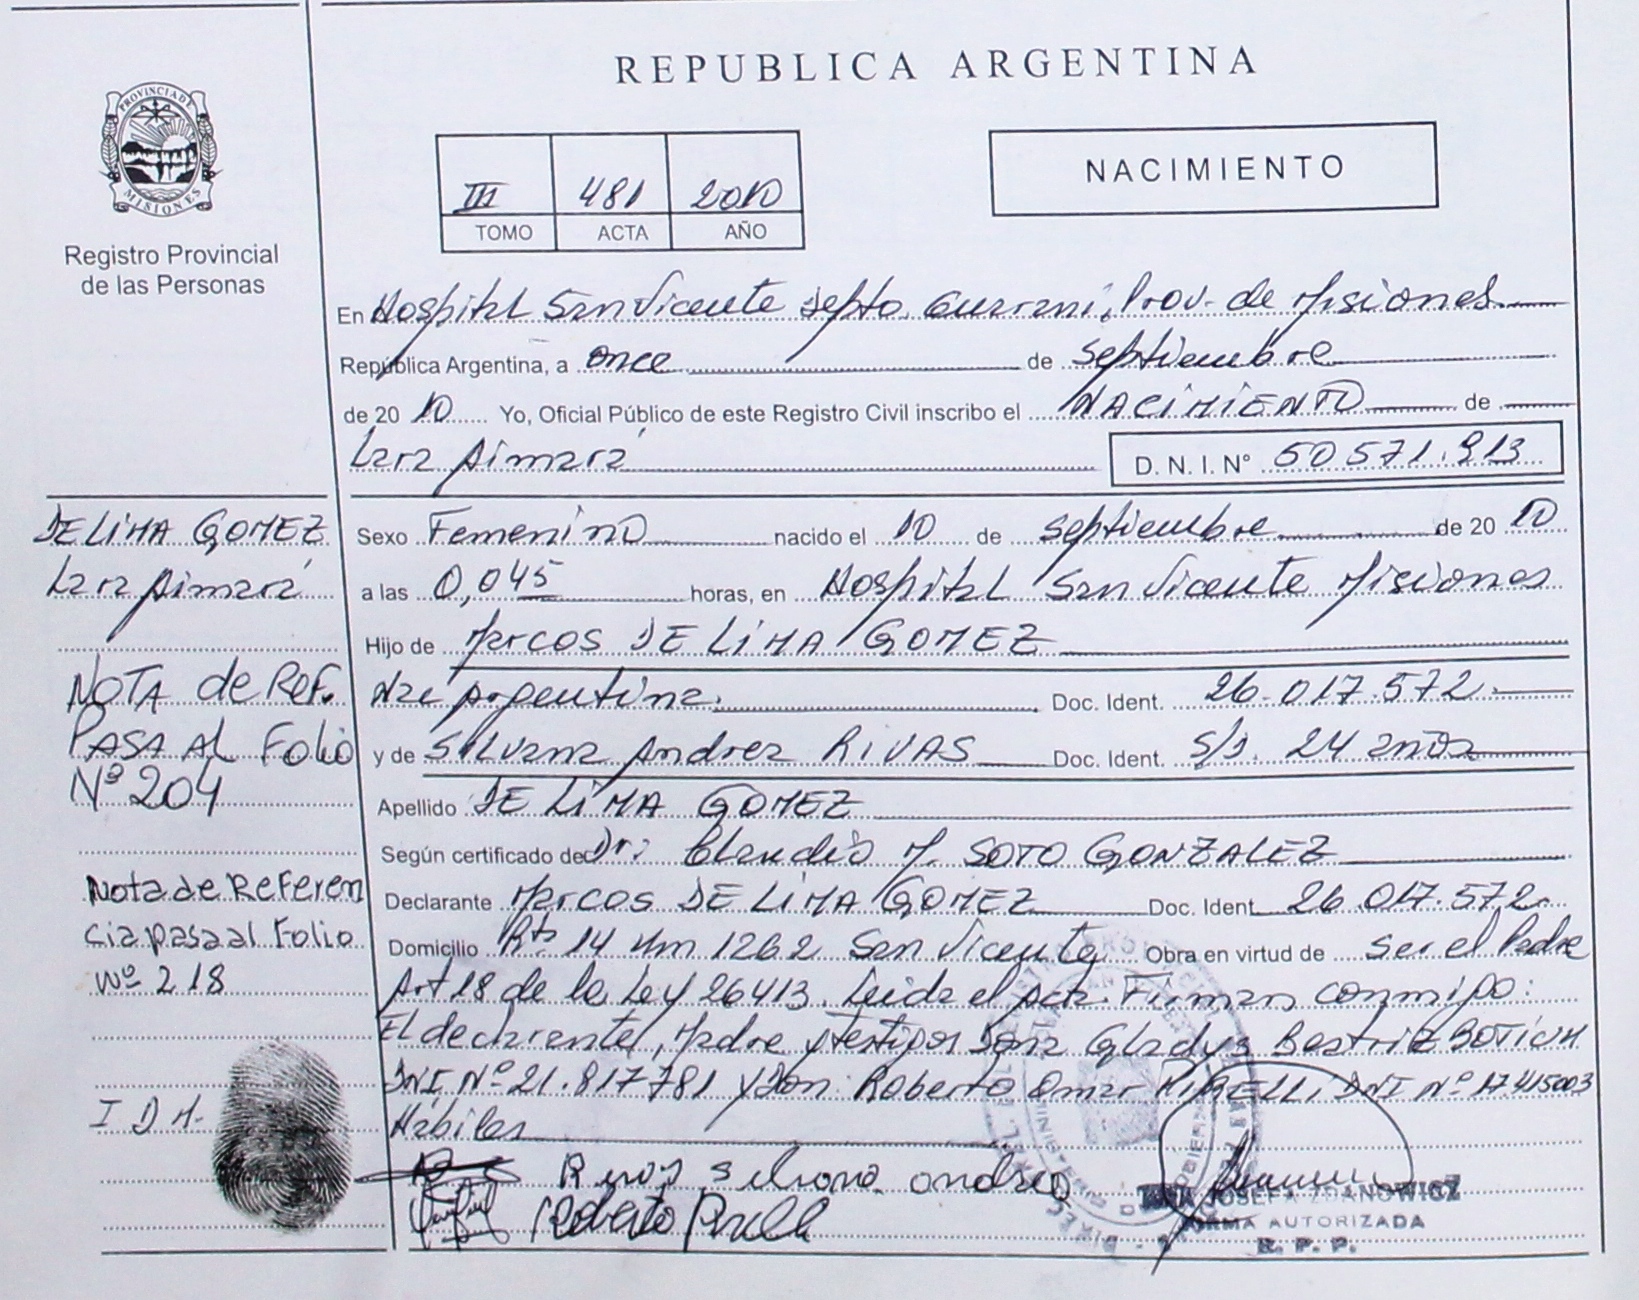 REPUBLICA ARGENTINA
PROVINCIA DE
MISIONES
Registro Provincial
de las Personas
III 481 2010
TOMO ACTA AÑO
NACIMIENTO
En Hospital San Vicente Depto. Guarani, Prov. de Misiones
República Argentina, a once de septiembre
de 2010 Yo, Oficial Público de este Registro Civil inscribo el NACIMIENTO de
Lara Aimará D. N. I. Nº 50571.913
DE LIMA GOMEZ
Lara Aimará
NOTA de REF.
PASA AL Folio
Nº 204
Nota de Referen
cia pasa al Folio
Nº 218
I D M.
Sexo Femenino nacido el 10 de septiembre de 2010
a las 0,045 horas, en Hospital San Vicente Misiones
Hijo de Marcos DE LIMA GOMEZ
Nac Argentina. Doc. Ident. 26.017.572
y de Silvana Andrea RIVAS Doc. Ident. S/D. 24 años
Apellido DE LIMA GOMEZ
Según certificado de Dr: Claudio M. SOTO GONZALEZ
Declarante Marcos DE LIMA GOMEZ Doc. Ident. 26.017.572
Domicilio Rta 14 Km 1262 San Vicente Obra en virtud de ser el Padre
Art 18 de la Ley 26413. Leida el Acta. Firman conmigo:
El declarante, Madre y testigos Doña Gladys Beatriz
DNI Nº 21.817781 y Don Roberto Omar DNI Nº 17.415003
Hábiles
Rivas silvana andrea
Roberto
JOSEFA ZDANOWICZ
FIRMA AUTORIZADA
R. P. P.